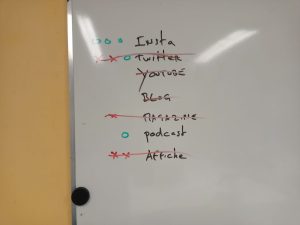 Insta
Twitter
YOUTUBE
BLOG
MAGAZINE
podcast
Affiche